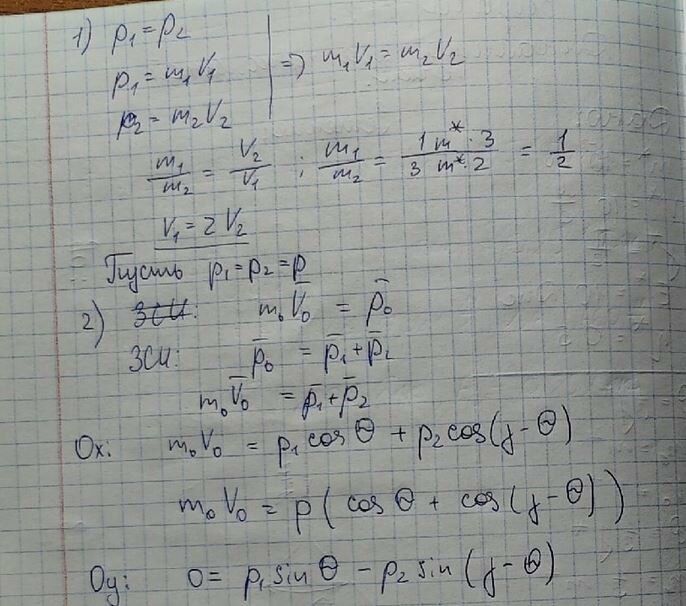 1) p₁ = p₂
p₁ = m₁V₁ => m₁V₁ = m₂V₂
p₂ = m₂V₂
m₁/m₂ = V₂/V₁ ; m₁/m₂ = 1 m* · 3 / 3 m* · 2 = 1/2
V₁ = 2 V₂
Пусть p₁ = p₂ = p
2) ЗСИ: m₀V̅₀ = p̅₀
ЗСИ: p̅₀ = p̅₁ + p̅₂
m₀V̅₀ = p̅₁ + p̅₂
Ox: m₀V₀ = p₁ cos Θ + p₂ cos(γ - Θ)
m₀V₀ = p ( cos Θ + cos (γ - Θ) )
Oy: 0 = p₁ sin Θ - p₂ sin (γ - Θ)